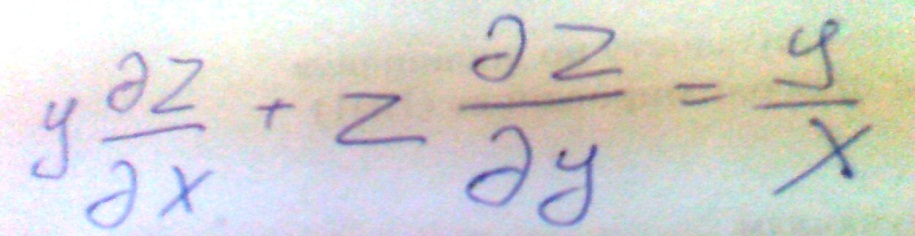 y ∂z/∂x + z ∂z/∂y = y/x